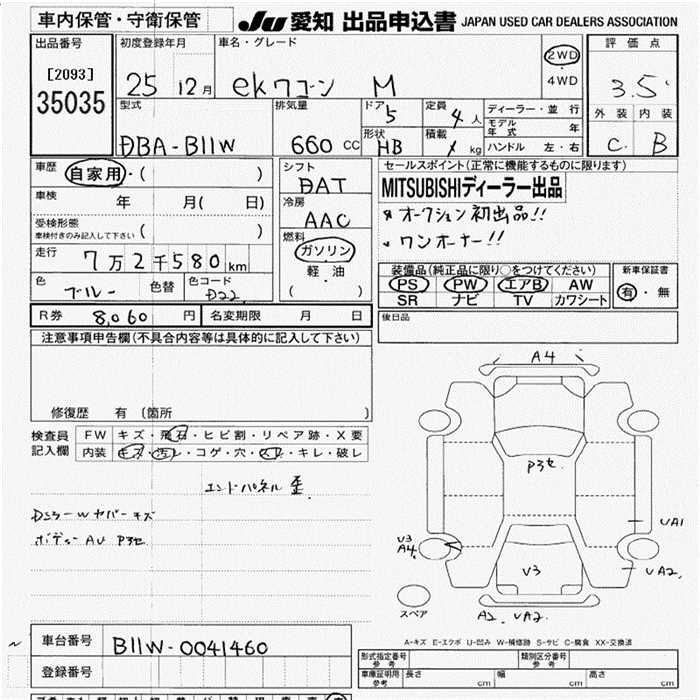 車内保管・守衛保管
JU 愛知 出品申込書 JAPAN USED CAR DEALERS ASSOCIATION
出品番号
[2093]
35035
初度登録年月
25 12月
車名・グレード
ekワゴン M
2WD
・
4WD
評価点
3.5
外装 内装
C B
型式
DBA-B11W
排気量
660 cc
ドア
5
定員
4人
形状
HB
積載
kg
ディーラー・並行
モデル年式 年
ハンドル 左・右
車歴
自家用・( )
車検
年 月( 日)
受検形態
車検付きのみ記入して下さい ( )
走行
7万2千580km
色
ブルー
色替
色コード
D22
シフト
DAT
冷房
AAC
燃料
ガソリン
軽・油
( )
セールスポイント(正常に機能するものに限ります)
MITSUBISHIディーラー出品
オークション初出品!!
ワンオーナー!!
装備品(純正品に限り○をつけてください)
PS PW エアB AW
SR ナビ TV カワシート
新車保証書
有・無
R券 8,060 円
名変期限 月 日
後日品
注意事項申告欄(不具合内容等は具体的に記入して下さい)
修復歴 有 (箇所 )
検査員
記入欄
FW キズ・飛石・ヒビ割・リペア跡・X要
内装 キズ・汚レ・コゲ・穴・スレ・キレ・破レ
エンドパネル歪
ボディー AU P3セ
A4
P3セ
UA1
V3
A4
V3
UA2
A2 UA2
スペア
A-キズ E-エクボ U-凹み W-補修跡 S-サビ C-腐食 XX-交換済
車台番号 B11W-0041460
登録番号
形式指定番号
参考
類別区分番号
参考
車庫証明用
参考
長さ cm 幅 cm 高さ cm